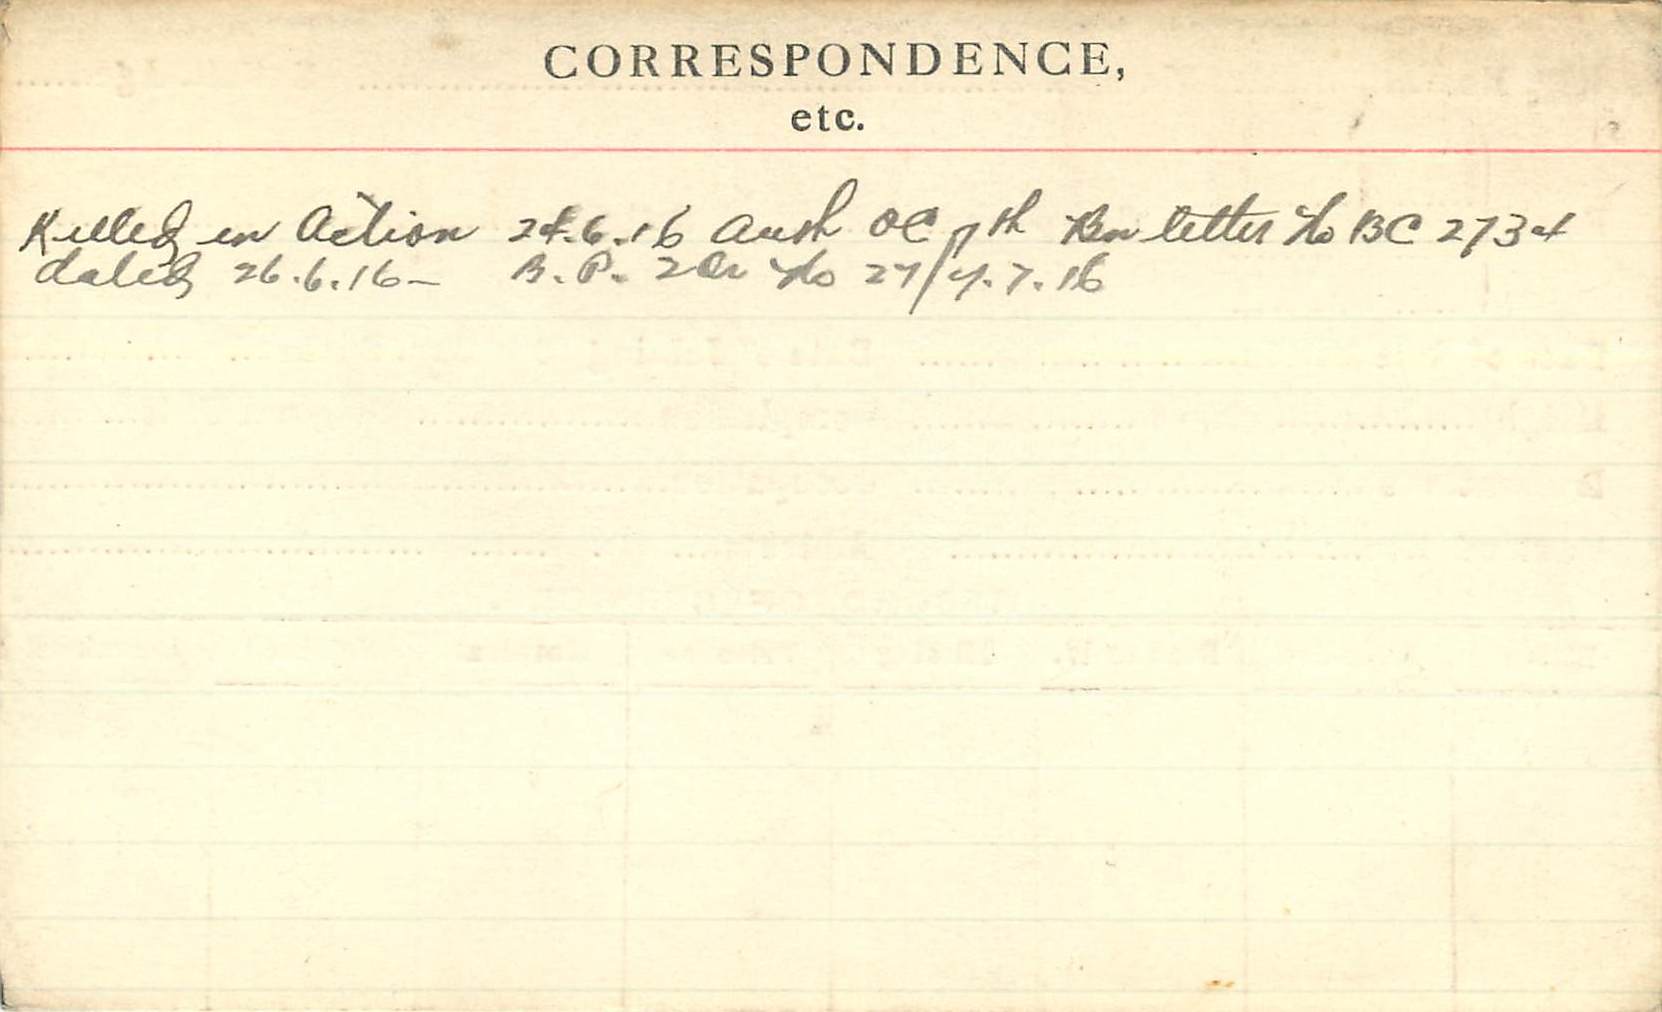 CORRESPONDENCE,
etc.
Killed in Action 24.6.16 Auth OC 7th Bn letter No BC 2734
dated 26.6.16- B.P. 2 Or No 27/4.7.16